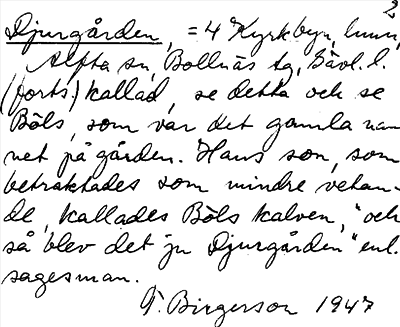 2
Djurgården, = 4 Kyrkbyn,
Alfta sn, Bollnäs tg, Gävl. l.
(forts) kallad, se detta och se
Böls, som var det gamla nam
net på gården. Hans son, som
betraktades som mindre vetan-
de, kallades Böls kalven, "och
så blev det ju Djurgården" enl.
sagesman.
F. Birgerson 1947